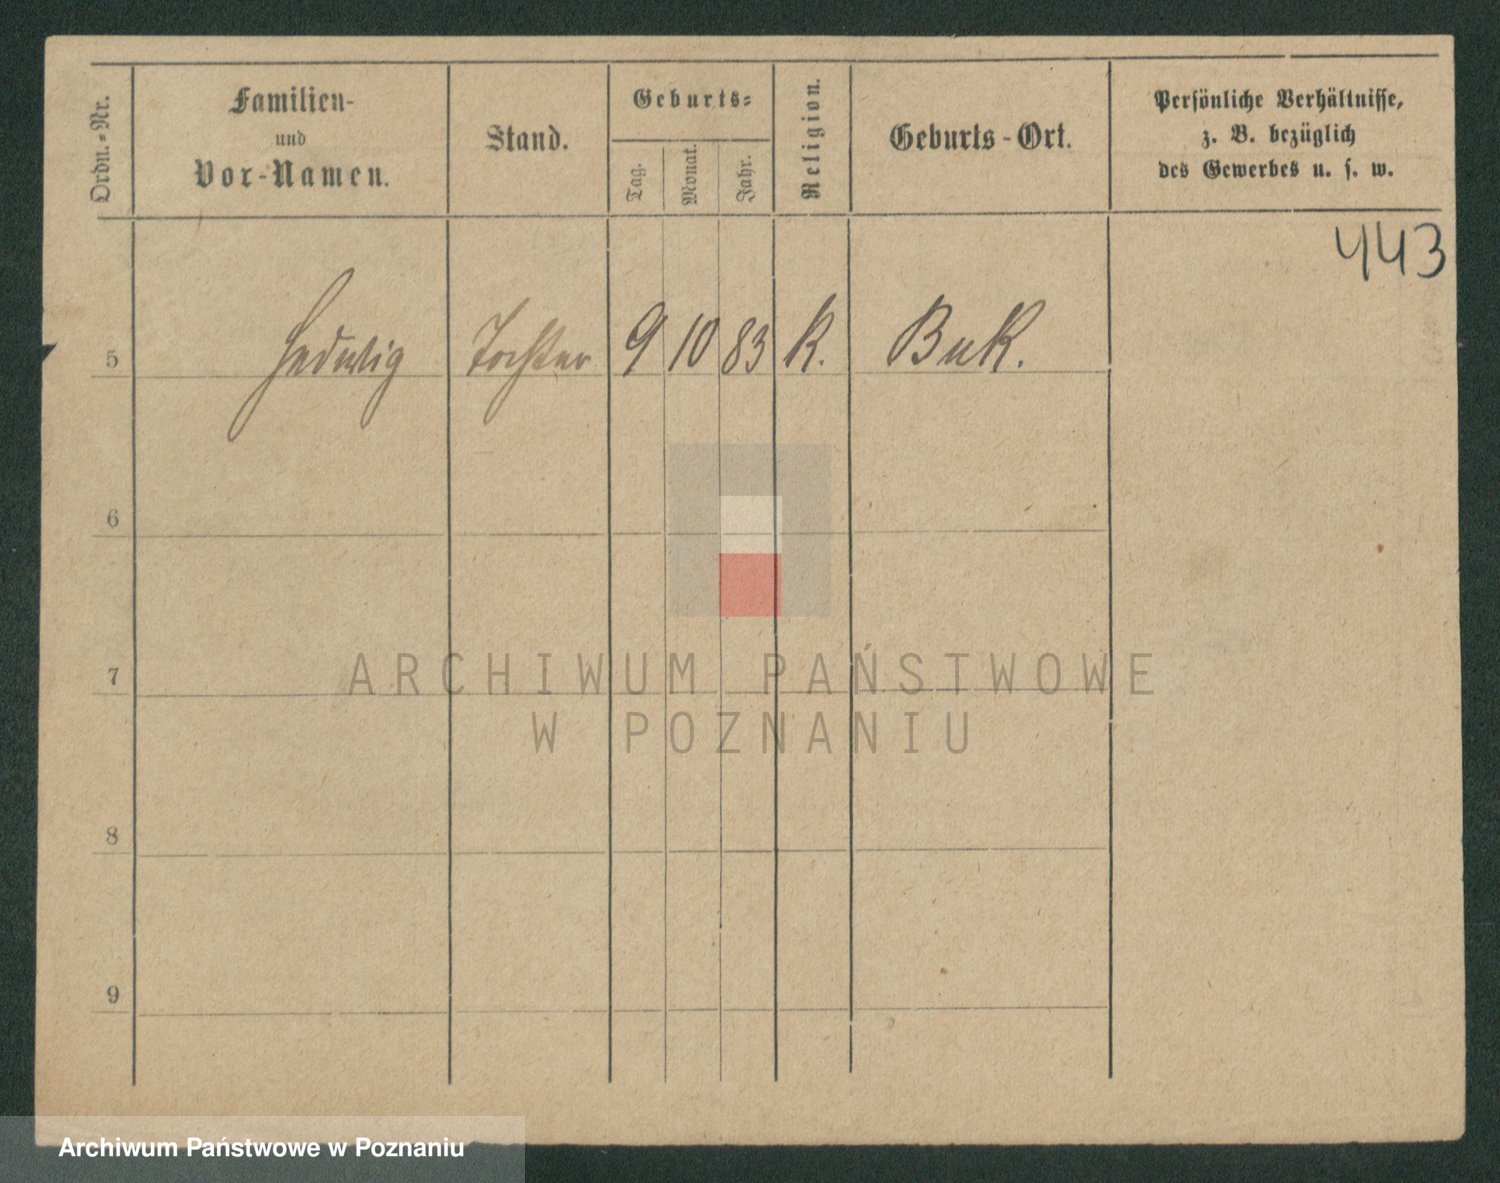 Ordn.-Nr.
Familien-
und
Vor-Namen.
Stand.
Geburts-
Tag.
Monat.
Jahr.
Religion.
Geburts-Ort.
Persönliche Verhältnisse,
z. B. bezüglich
des Gewerbes u. s. w.
443
5 Hedwig Tochter 9 10 83 K. Buk.
6
7
ARCHIWUM PAŃSTWOWE
W POZNANIU
8
9
Archiwum Państwowe w Poznaniu